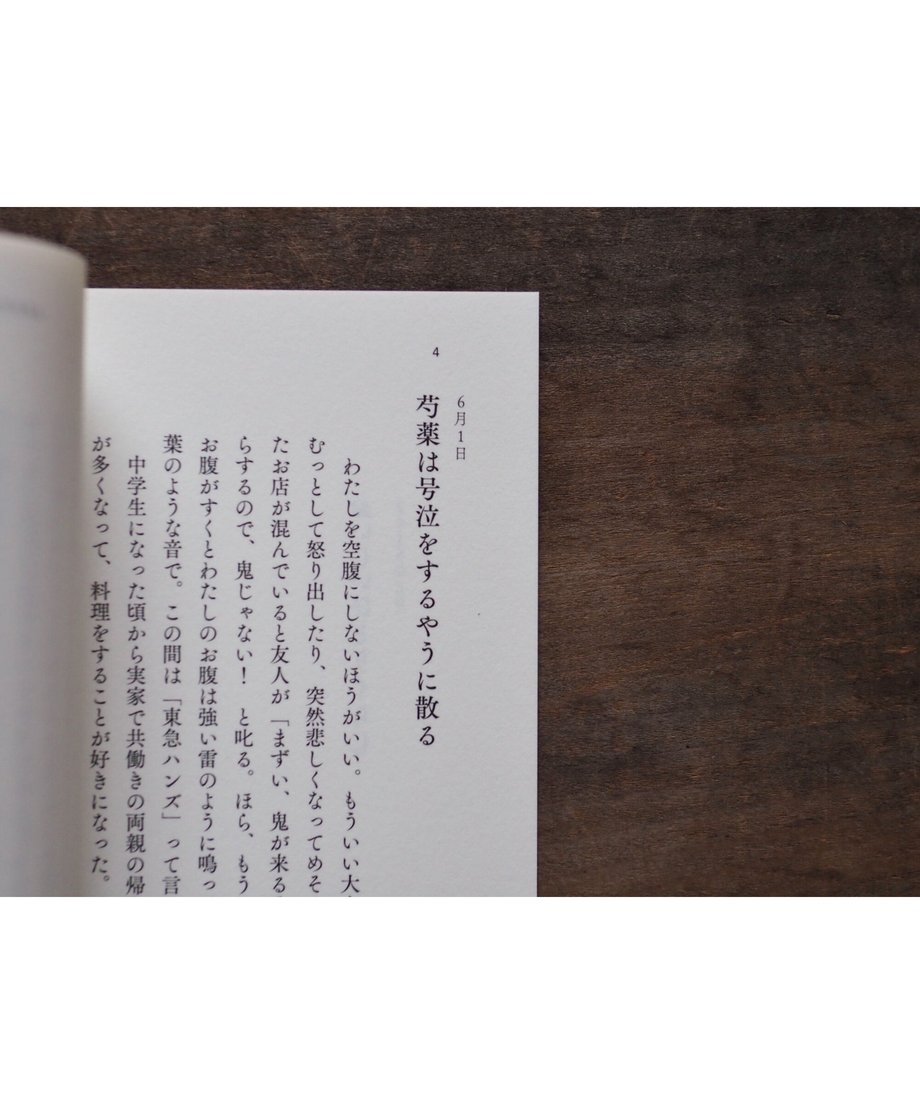 4
6月1日
芍薬は号泣をするやうに散る
わたしを空腹にしないほうがいい。もういい大
むっとして怒り出したり、突然悲しくなってめそ
たお店が混んでいると友人が「まずい、鬼が来る
らするので、鬼じゃない！　と叱る。ほら、もう
お腹がすくとわたしのお腹は強い雷のように鳴っ
葉のような音で。この間は「東急ハンズ」って言
中学生になった頃から実家で共働きの両親の帰
が多くなって、料理をすることが好きになった。